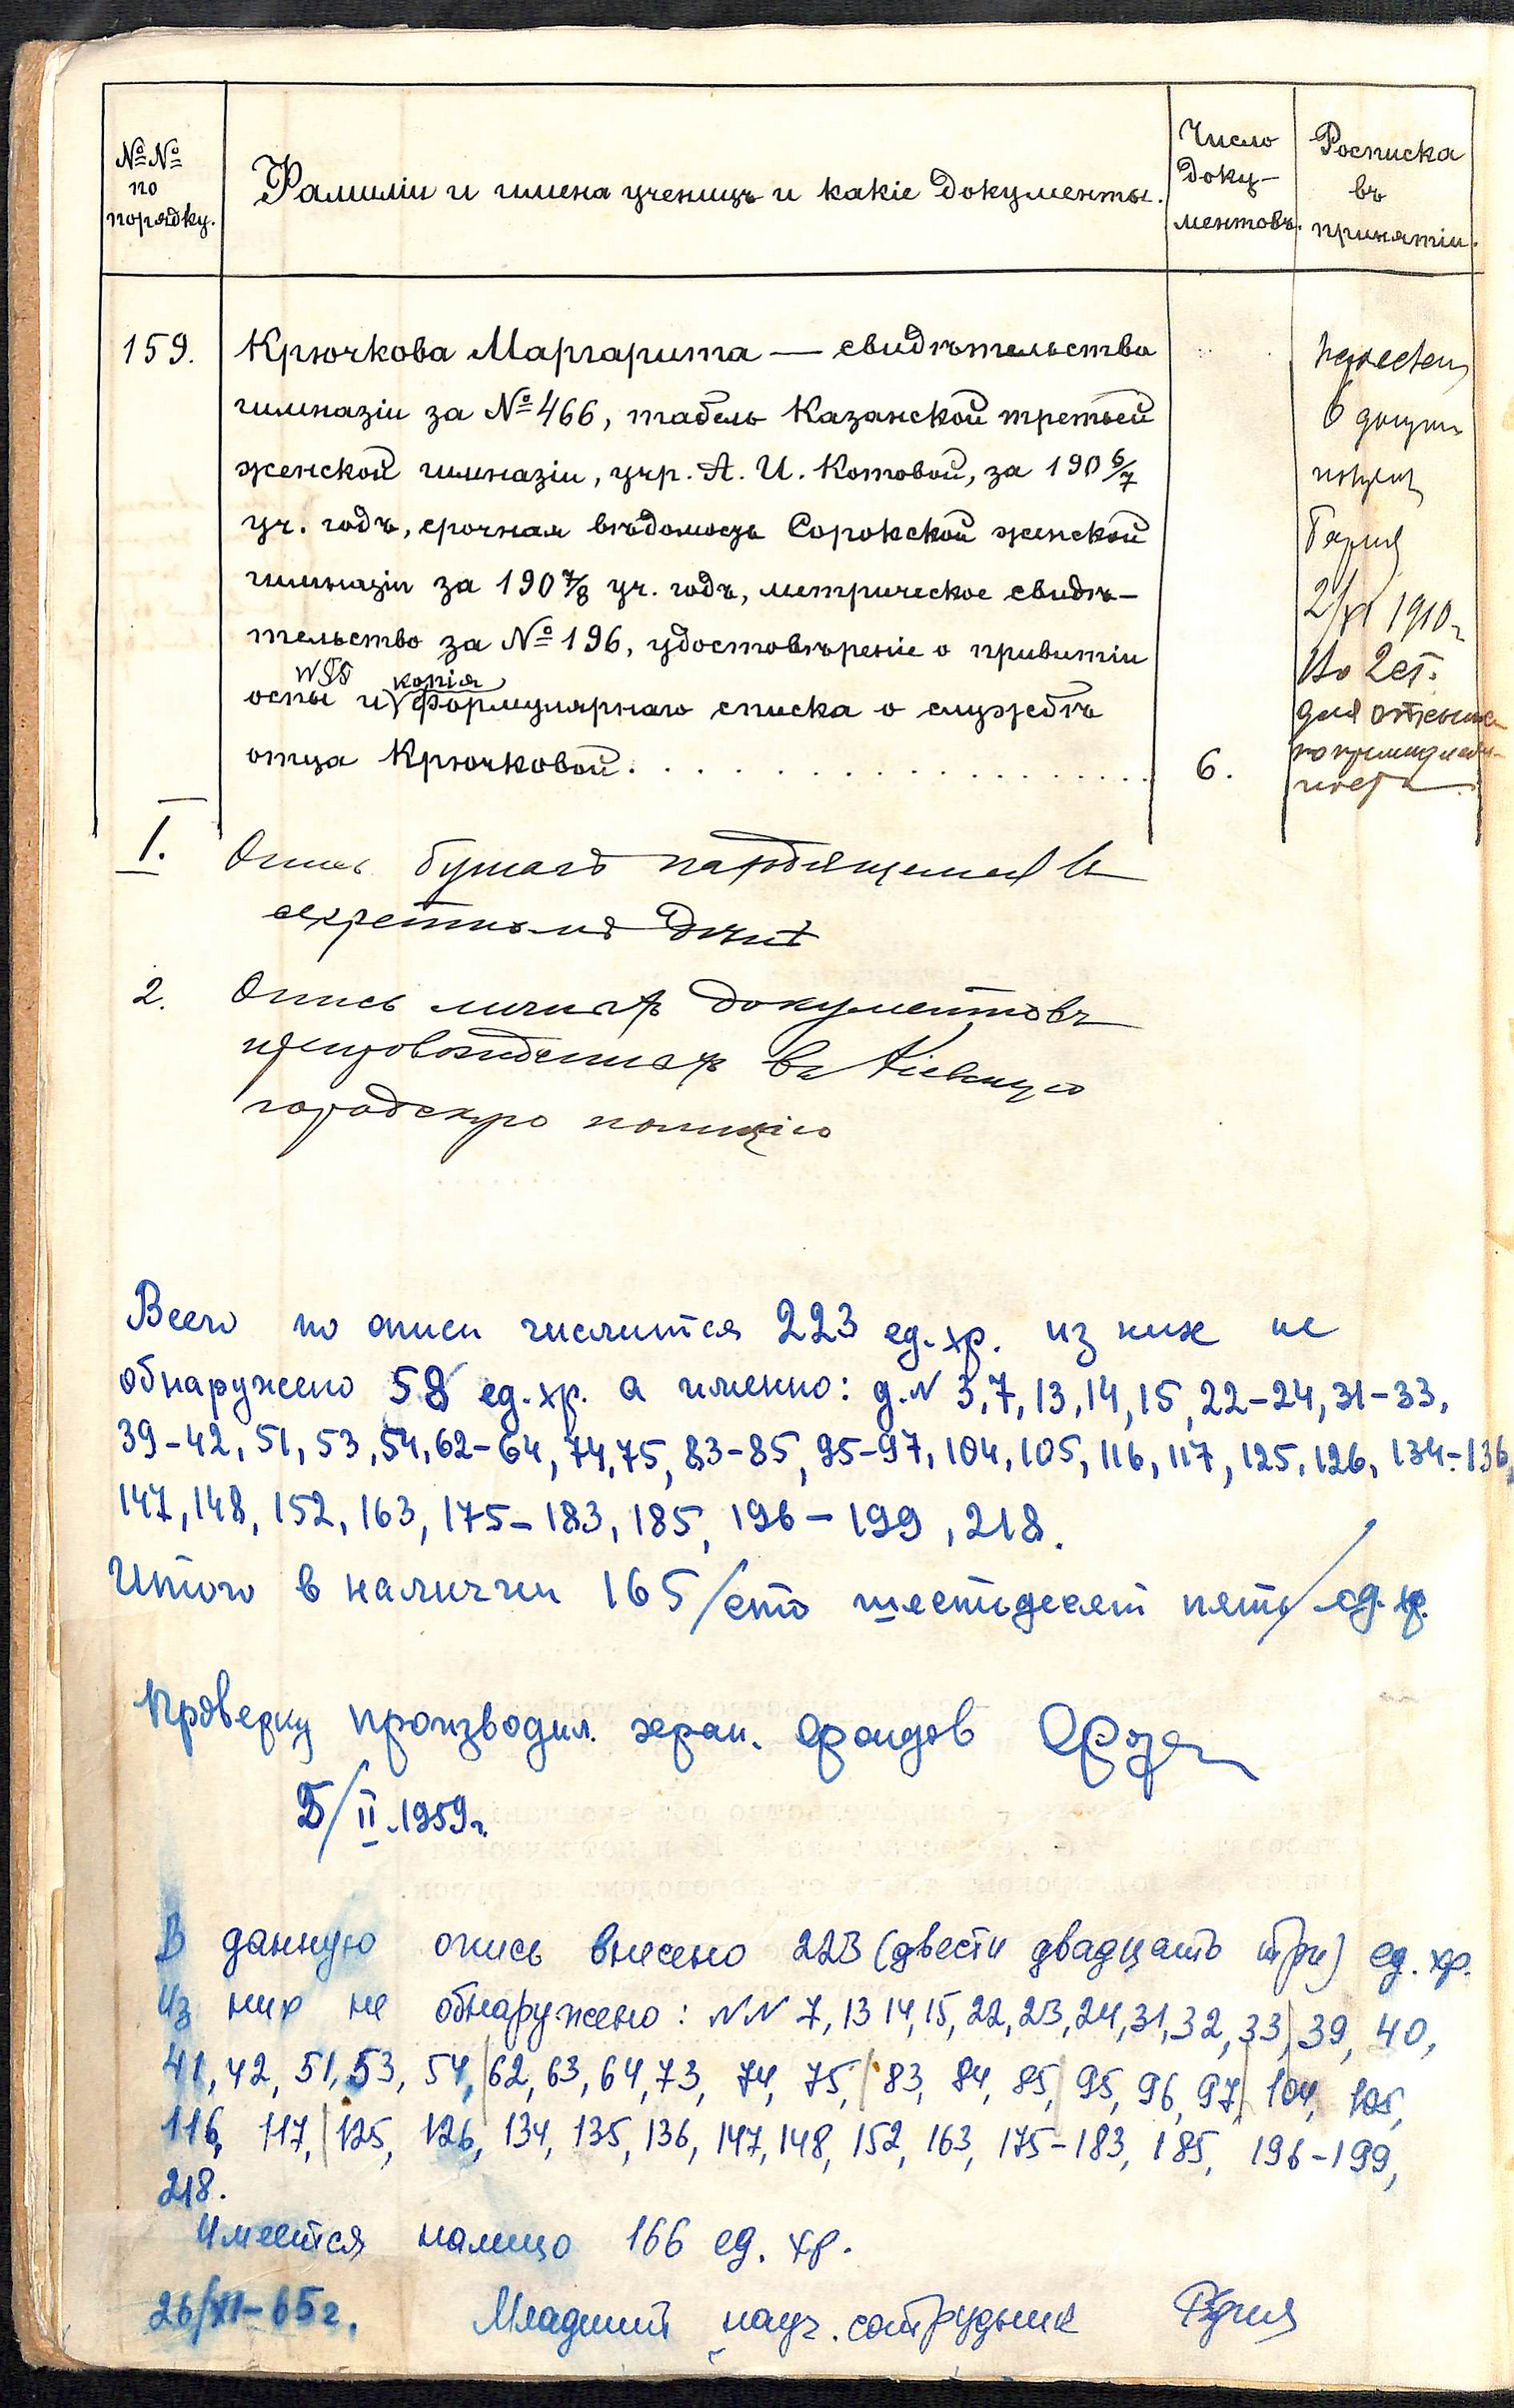 №№ по порядку.
Фамиліи и имена ученицъ и какіе документы.
Число доку-ментовъ.
Росписка въ принятіи.
159. Крючкова Маргарита — свидѣтельство
гимназіи за № 466, табель Казанской третьей
женской гимназіи, учр. А. И. Котовой, за 190 6/7
уч. годъ, срочная вѣдомость Сорокской женской
гимназіи за 190 7/8 уч. годъ, метрическое свидѣ-
тельство за № 196, удостовѣреніе о привитіи
копія
оспы и формулярнаго списка о службѣ
отца Крючковой. 6.
6 докум
2/XI 1910 г
I. Опись бумагъ находящихся въ
секретномъ
2. Опись личныхъ документовъ
препровожденныхъ въ Кіевскую
городскую полицію
Всего по описи числится 223 ед. хр. из них не
обнаружено 58 ед. хр. а именно: д. N 3, 7, 13, 14, 15, 22-24, 31-33,
39-42, 51, 53, 54, 62-64, 74, 75, 83-85, 95-97, 104, 105, 116, 117, 125, 126, 134-136,
147, 148, 152, 163, 175-183, 185, 196-199, 218.
Итого в наличии 165 /сто шестьдесят пять/ ед. хр.
Проверку производил. хран. фондов
5/II.1959 г.
В данную опись внесено 223 (двести двадцать три) ед. хр.
Из них не обнаружено: NN 7, 13 14, 15, 22, 23, 24, 31, 32, 33, 39, 40,
41, 42, 51, 53, 54, 62, 63, 64, 73, 74, 75, 83, 84, 85, 95, 96, 97, 104, 105,
116, 117, 125, 126, 134, 135, 136, 147, 148, 152, 163, 175-183, 185, 196-199,
218.
Имеется налицо 166 ед. хр.
26/XI-65 г. Младший науч. сотрудник